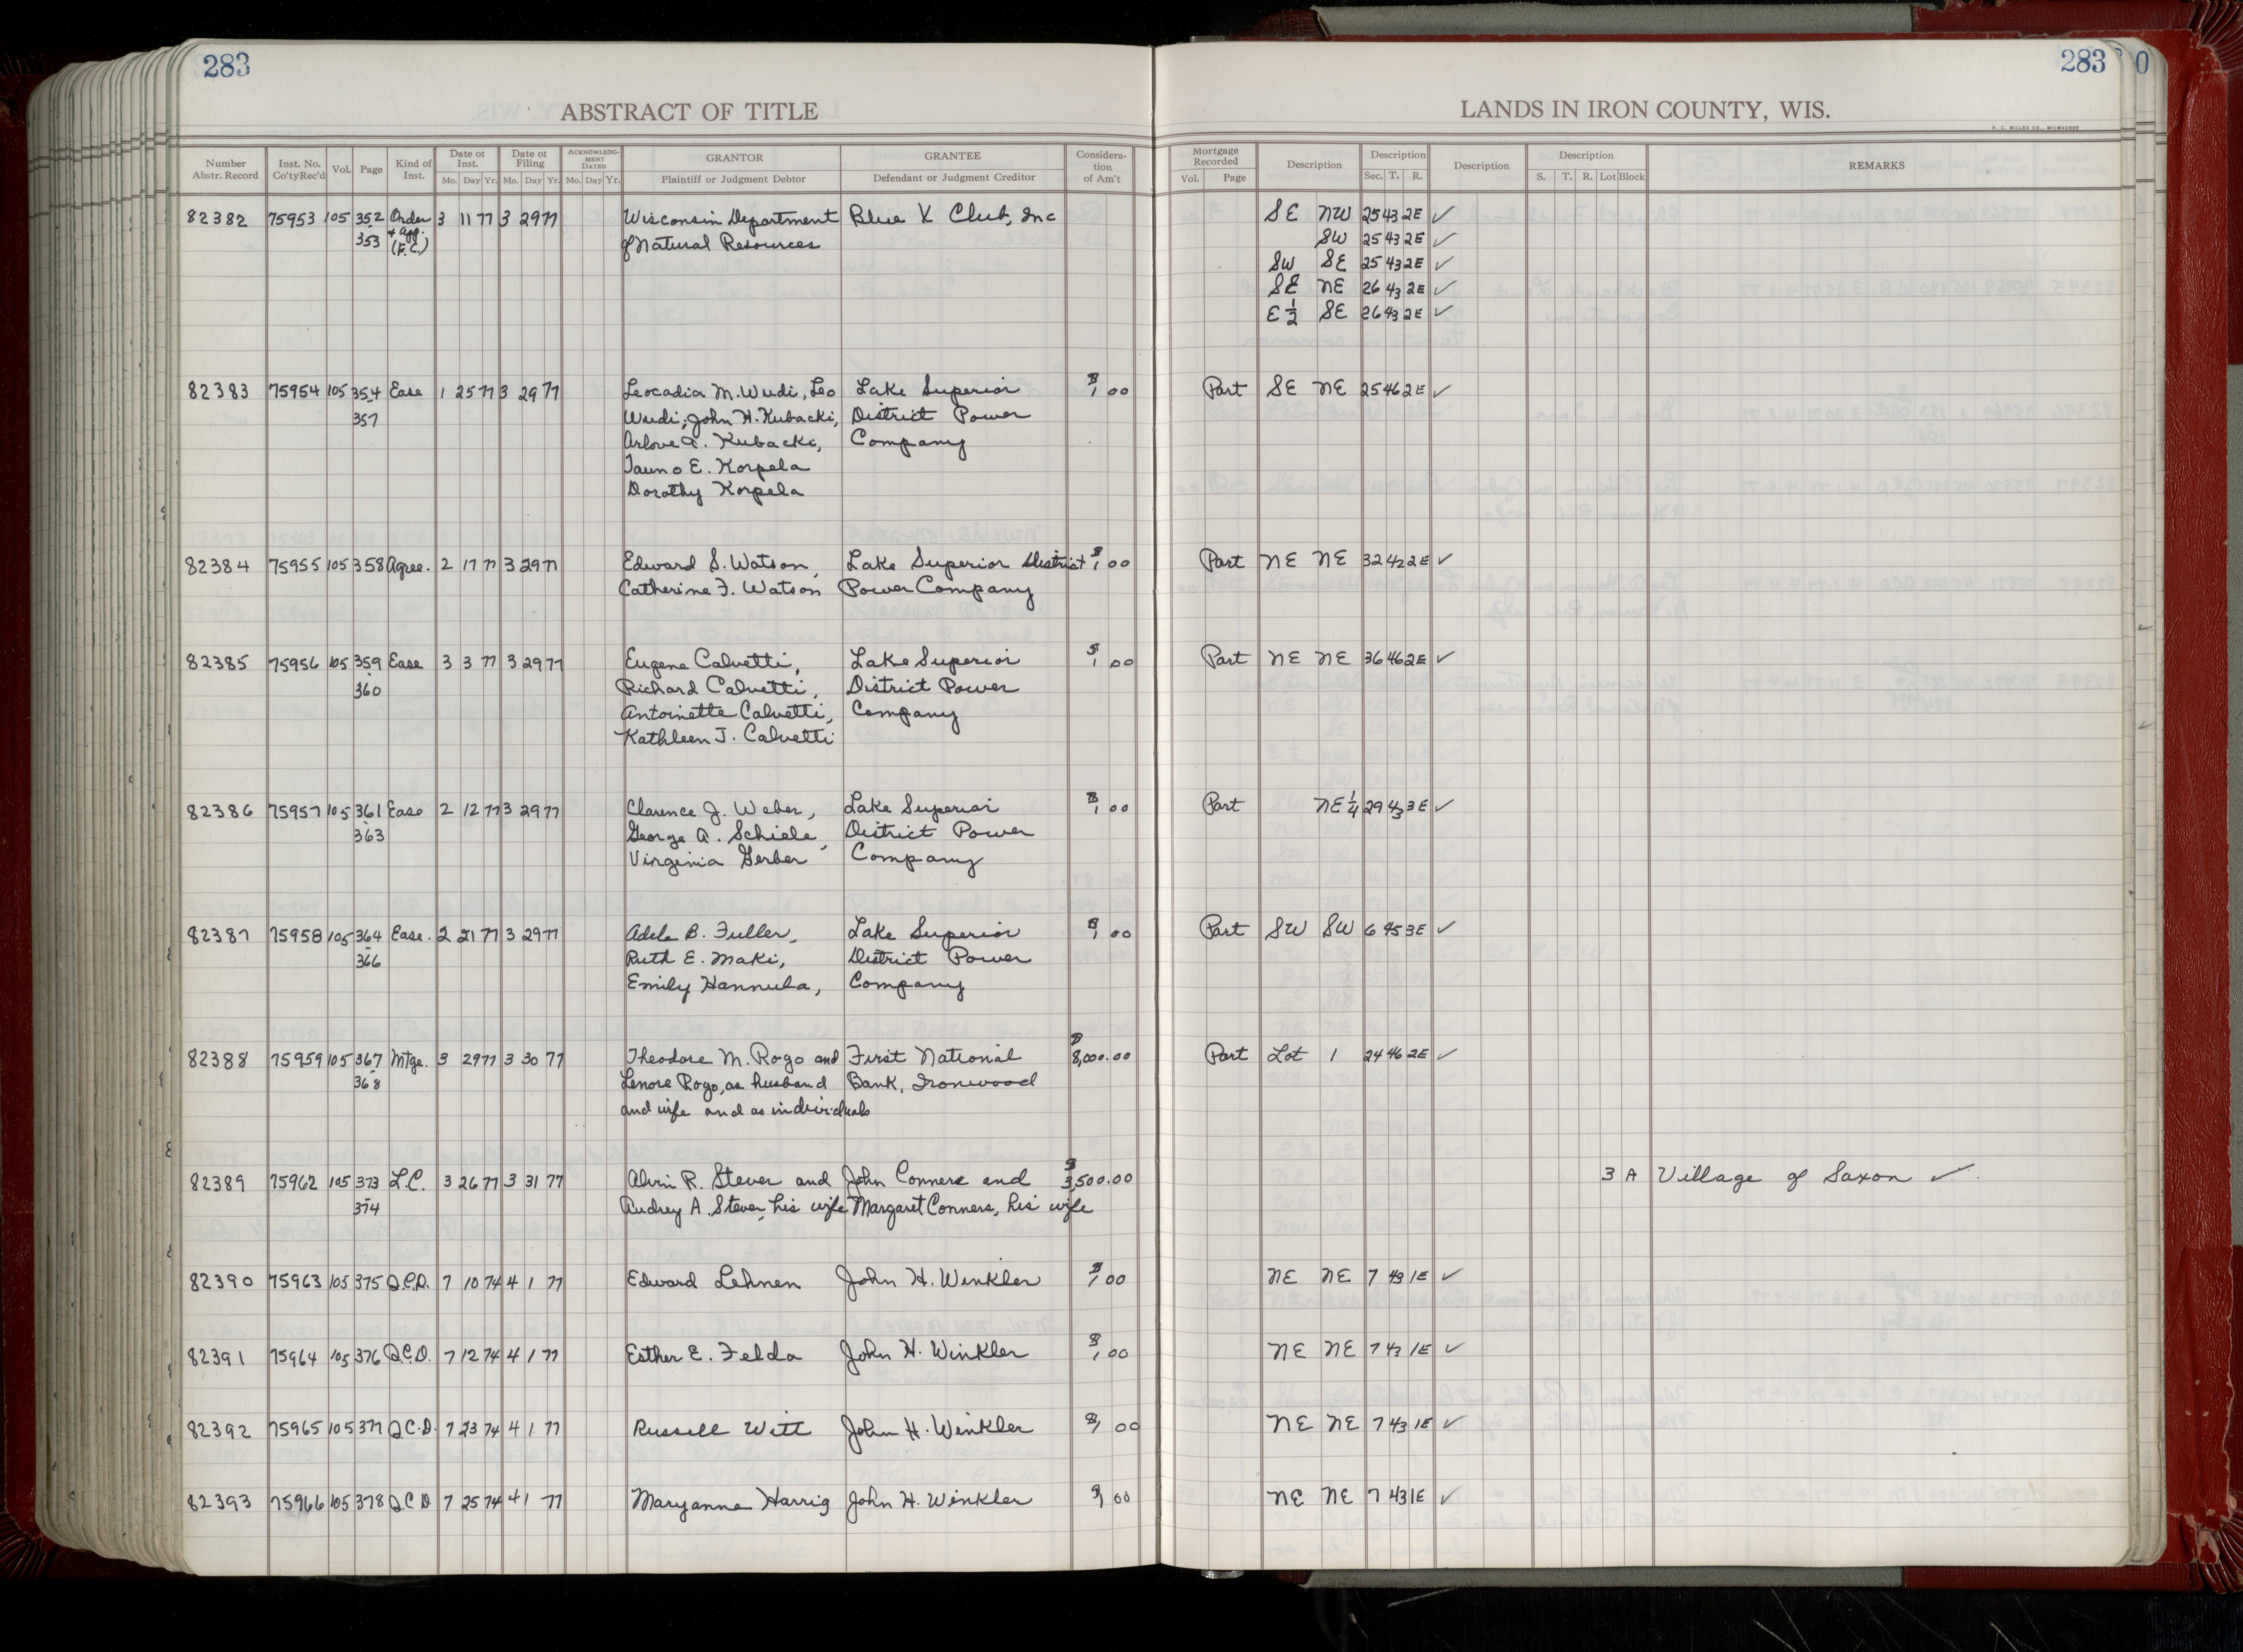 283
283
ABSTRACT OF TITLE
LANDS IN IRON COUNTY, WIS.
H. C. MILLER CO., MILWAUKEE
Number Abstr. Record | Inst. No. Co'ty Rec'd | Vol. | Page | Kind of Inst. | Date of Inst. Mo. Day Yr. | Date of Filing Mo. Day Yr. | ACKNOWLEDGMENT DATED Mo. Day Yr. | GRANTOR Plaintiff or Judgment Debtor | GRANTEE Defendant or Judgment Creditor | Consideration of Am't | Mortgage Recorded Vol. Page | Description | Description Sec. T. R. | Description | Description S. T. R. Lot Block | REMARKS
82382 75953 105 352 Order 3 11 77 3 29 77 Wisconsin Department Blue K Club, Inc SE NW 25 43 2E ✓
353 & App. (F.C.) of Natural Resources SW 25 43 2E ✓
SW SE 25 43 2E ✓
SE NE 26 43 2E ✓
E 1/2 SE 26 43 2E ✓
82383 75954 105 354 Ease 1 25 77 3 29 77 Leocadia M. Wudi, Leo Lake Superior $1 00 Part SE NE 25 46 2E ✓
357 Wudi; John H. Kubacki, District Power
Arlove A. Kubacki, Company
Tauno E. Korpela
Dorothy Korpela
82384 75955 105 358 Agree. 2 17 77 3 29 77 Edward S. Watson, Lake Superior District $1 00 Part NE NE 32 42 2E ✓
Catherine F. Watson Power Company
82385 75956 105 359 Ease 3 3 77 3 29 77 Eugene Calvetti, Lake Superior $1 00 Part NE NE 36 46 2E ✓
360 Richard Calvetti, District Power
Antoinette Calvetti, Company
Kathleen J. Calvetti
82386 75957 105 361 Ease 2 12 77 3 29 77 Clarence J. Weber, Lake Superior $1 00 Part NE 1/4 29 43 3E ✓
363 George A. Schiele, District Power
Virginia Gerber Company
82387 75958 105 364 Ease. 2 21 77 3 29 77 Adele B. Fuller, Lake Superior $1 00 Part SW SW 6 45 3E ✓
366 Ruth E. Maki, District Power
Emily Hannula, Company
82388 75959 105 367 Mtge. 3 29 77 3 30 77 Theodore M. Rogo and First National $8,000.00 Part Lot 1 24 46 2E ✓
368 Lenore Rogo, as husband Bank, Ironwood
and wife and as individuals
82389 75962 105 373 L.C. 3 26 77 3 31 77 Alvin R. Stever and John Conners and $3,500.00 3 A Village of Saxon ✓
374 Audrey A. Stever, his wife Margaret Conners, his wife
82390 75963 105 375 Q.C.D. 7 10 74 4 1 77 Edward Lehnen John H. Winkler $1 00 NE NE 7 43 1E ✓
82391 75964 105 376 Q.C.D. 7 12 74 4 1 77 Esther E. Felda John H. Winkler $1 00 NE NE 7 43 1E ✓
82392 75965 105 377 Q.C.D. 7 23 74 4 1 77 Russell Witt John H. Winkler $1 00 NE NE 7 43 1E ✓
82393 75966 105 378 Q.C.D 7 25 74 4 1 77 Maryanne Harrig John H. Winkler $1 00 NE NE 7 43 1E ✓